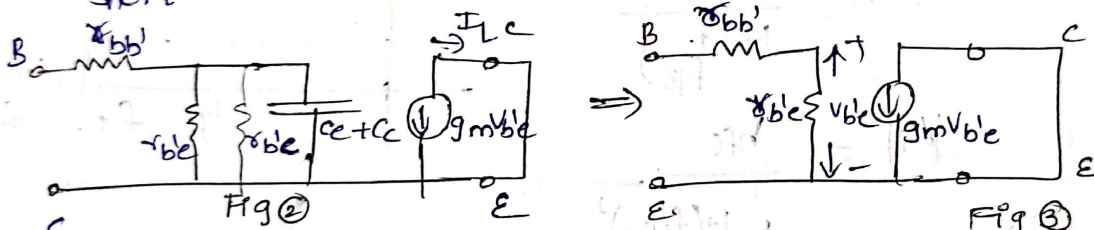 B r_bb' I_L C
r_b'e r_b'e Ce+Cc gmVb'e
E
Fig ②
⇒
B r_bb' C
r_b'e + Vb'e - gmVb'e
E E
Fig ③